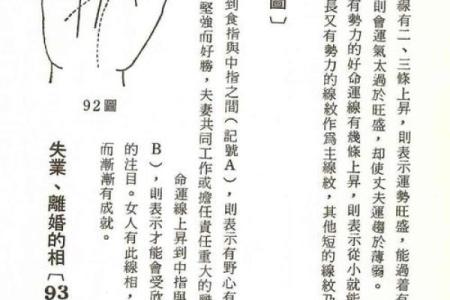 線有二、三條上昇，則表示運勢旺盛，能過着有
則會運氣太過於旺盛，却使丈夫運趨於薄弱。
有勢力的好命運線有幾條上昇，則表示從小就能
長又有勢力的線紋作爲主線紋，其他短的線紋乃
圖〕
到食指與中指之間（記號A），則表示有野心有
堅強而好勝，夫妻共同工作或擔任責任重大的職
命運線上昇到中指與
B），則表示才能會受欣
的注目。女人有此線相，
而漸漸有成就。
92圖
失業、離婚的相〔93